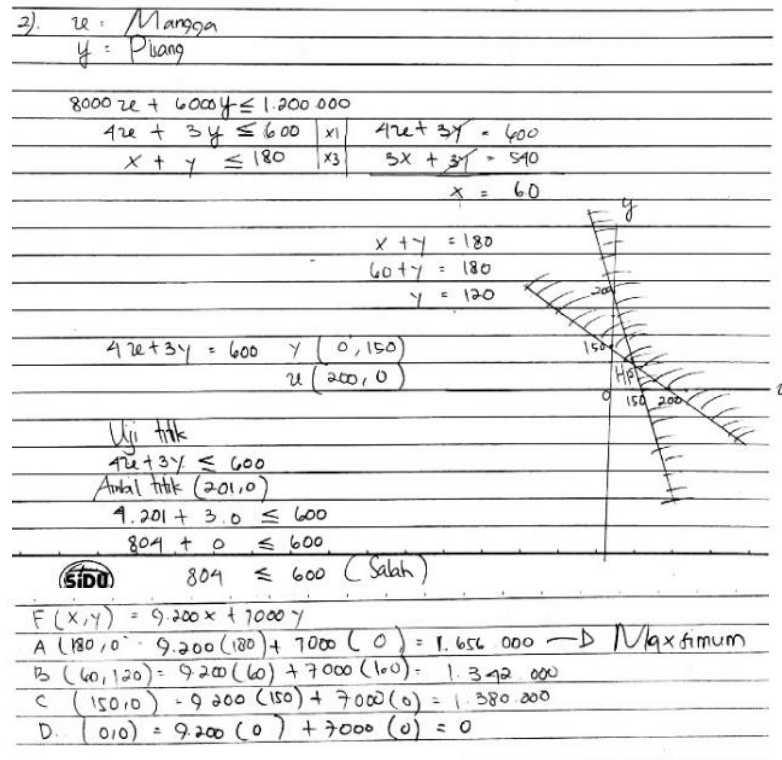 2). x : Mangga
y : Pisang
8000 x + 6000 y ≤ 1.200.000
4x + 3y ≤ 600 | x1 | 4x + 3y = 600
x + y ≤ 180 | x3 | 3x + 3y = 540
x = 60
y
x + y = 180
60 + y = 180
y = 120
200
4x + 3y = 600 y ( 0 , 150)
150
x ( 200 , 0 )
Hp
0 150 200
Uji titik
4x + 3y ≤ 600
Ambil titik (201,0)
4.201 + 3.0 ≤ 600
804 + 0 ≤ 600
SIDU 804 ≤ 600 ( Salah )
F (x,y) = 9.200 x + 7000 y
A (180,0 = 9.200 (180) + 7000 ( 0 ) = 1.656.000 → Maxsimum
B (60,120) = 9.200 (60) + 7000 (100) = 1.342.000
C (150,0) = 9 200 (150) + 7000 (0) = 1.380.000
D. (0,0) = 9.200 (0) + 7000 (0) = 0